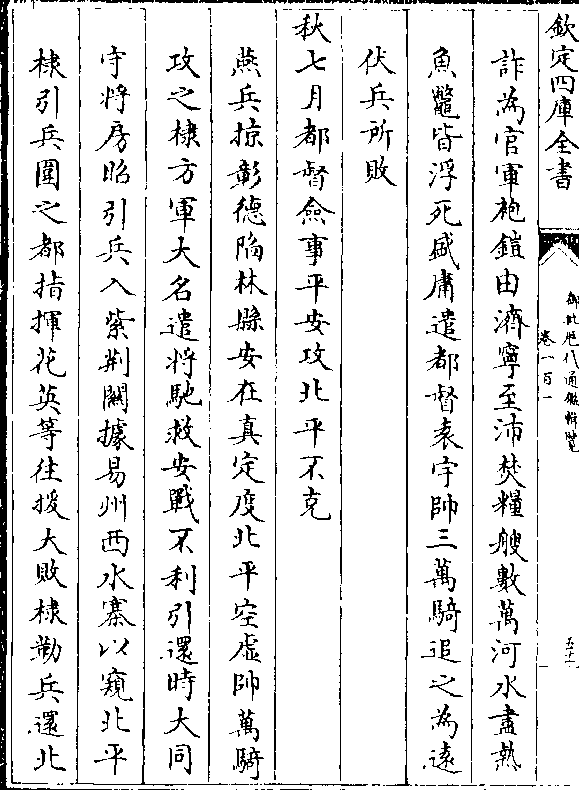 欽定四庫全書
御批歷代通鑑輯覽
卷一百一
詐為官軍袍鎧由濟寧至沛焚糧艘數萬河水盡熱
魚鼈皆浮死盛庸遣都督袁宇帥三萬騎追之為遠
伏兵所敗
秋七月都督僉事平安攻北平不克
燕兵掠彰德陷林縣安在真定度北平空虛帥萬騎
攻之棣方軍大名遣將馳救安戰不利引還時大同
守將房昭引兵入紫荆關據易州西水寨以窺北平
棣引兵圍之都指揮花英等往援大敗棣勒兵還北